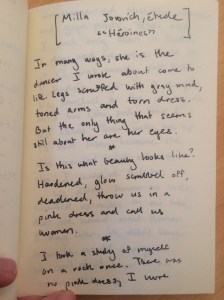 [Milla Jovovich, Étude
"Héroines"]
In many ways, she is the
dancer I wrote about come to
life. Legs scuffed with gray mud,
toned arms and torn dress.
But the only thing that seems
still about her are her eyes.
*
Is this what beauty looks like?
Hardened, glow scrubbed off,
deadened, throw us in a
pink dress and call us
women.
*
I took a study of myself
on a rock once. There was
no pink dress, I wore